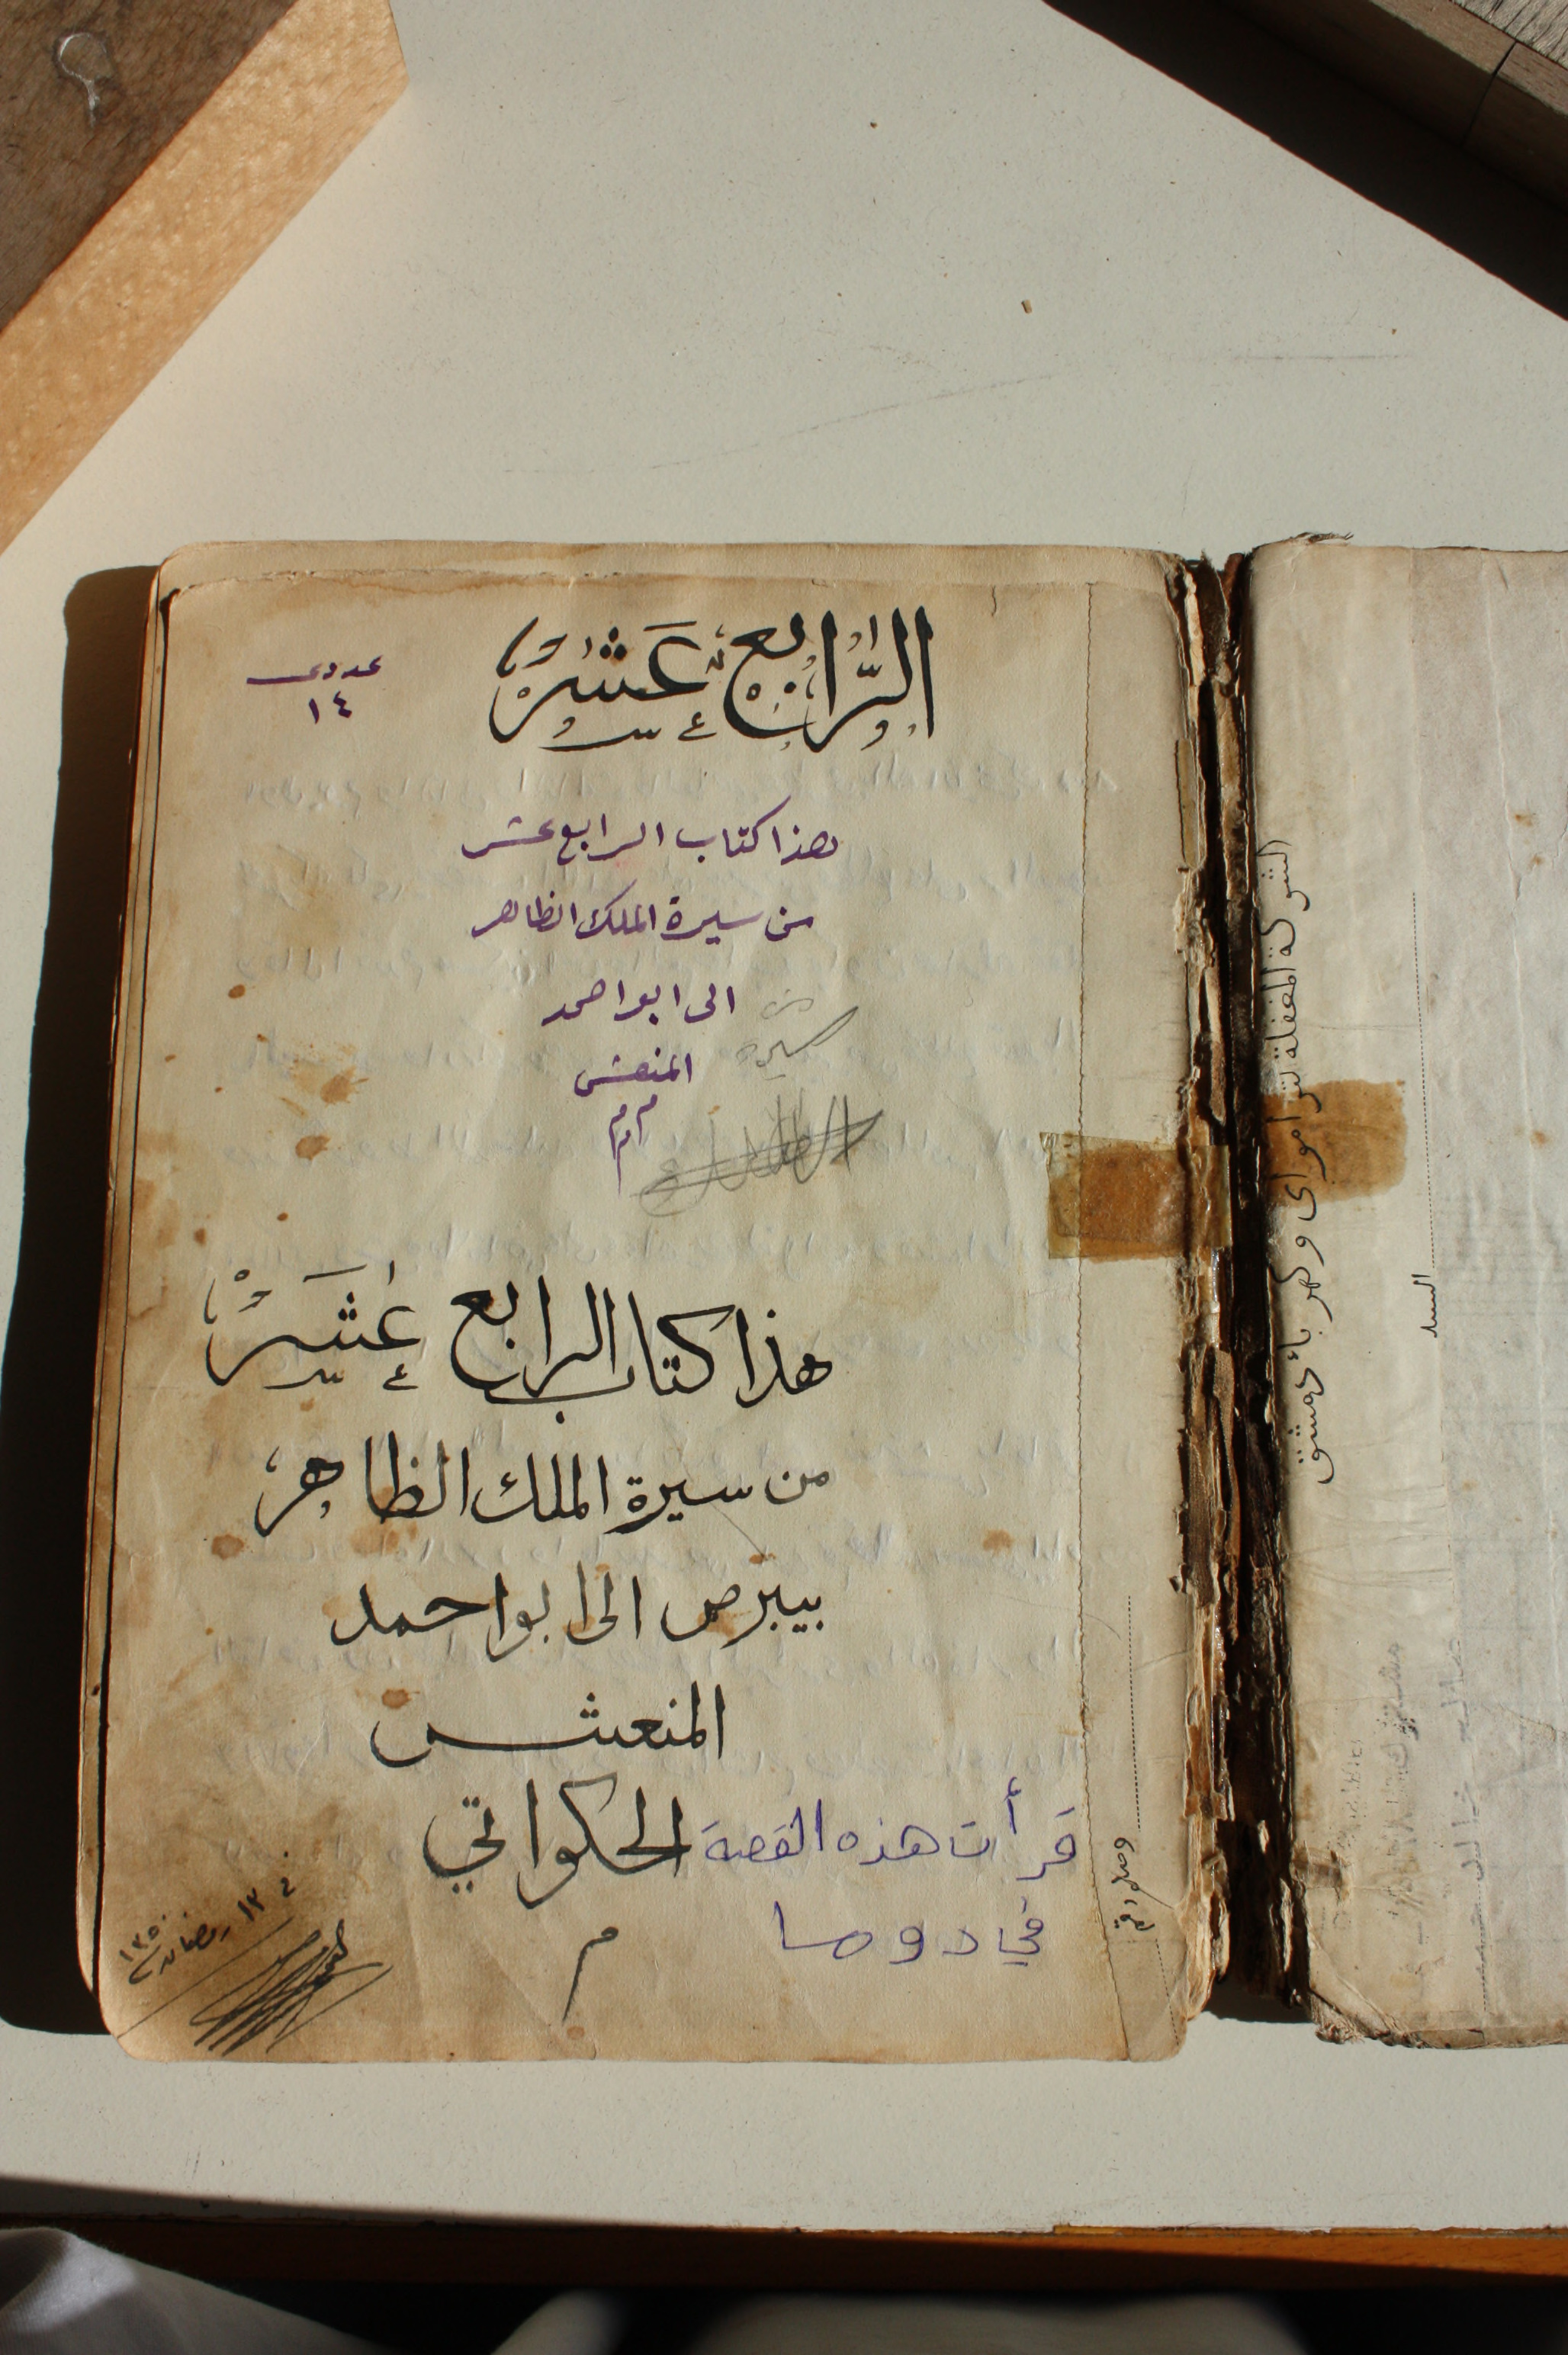 الرَّابع عَشَرْ
عدد
١٤
هذا كتاب الرابع عشر
من سيرة الملك الظاهر
الى ابو احمد
من
سيره
المنعش
م م م
هذا كتاب الرابع عَشَرْ
من سيرة الملك الظاهر
بيبرص الى ابو احمد
المنعش
الحكواتي
م
قرأت هذه القصة
في دوما
في ١٣ رمضان سنة ١٣٥٠
وصل رقم
الشركة المغفلة لتراموای وكهرباء دمشق
السيد